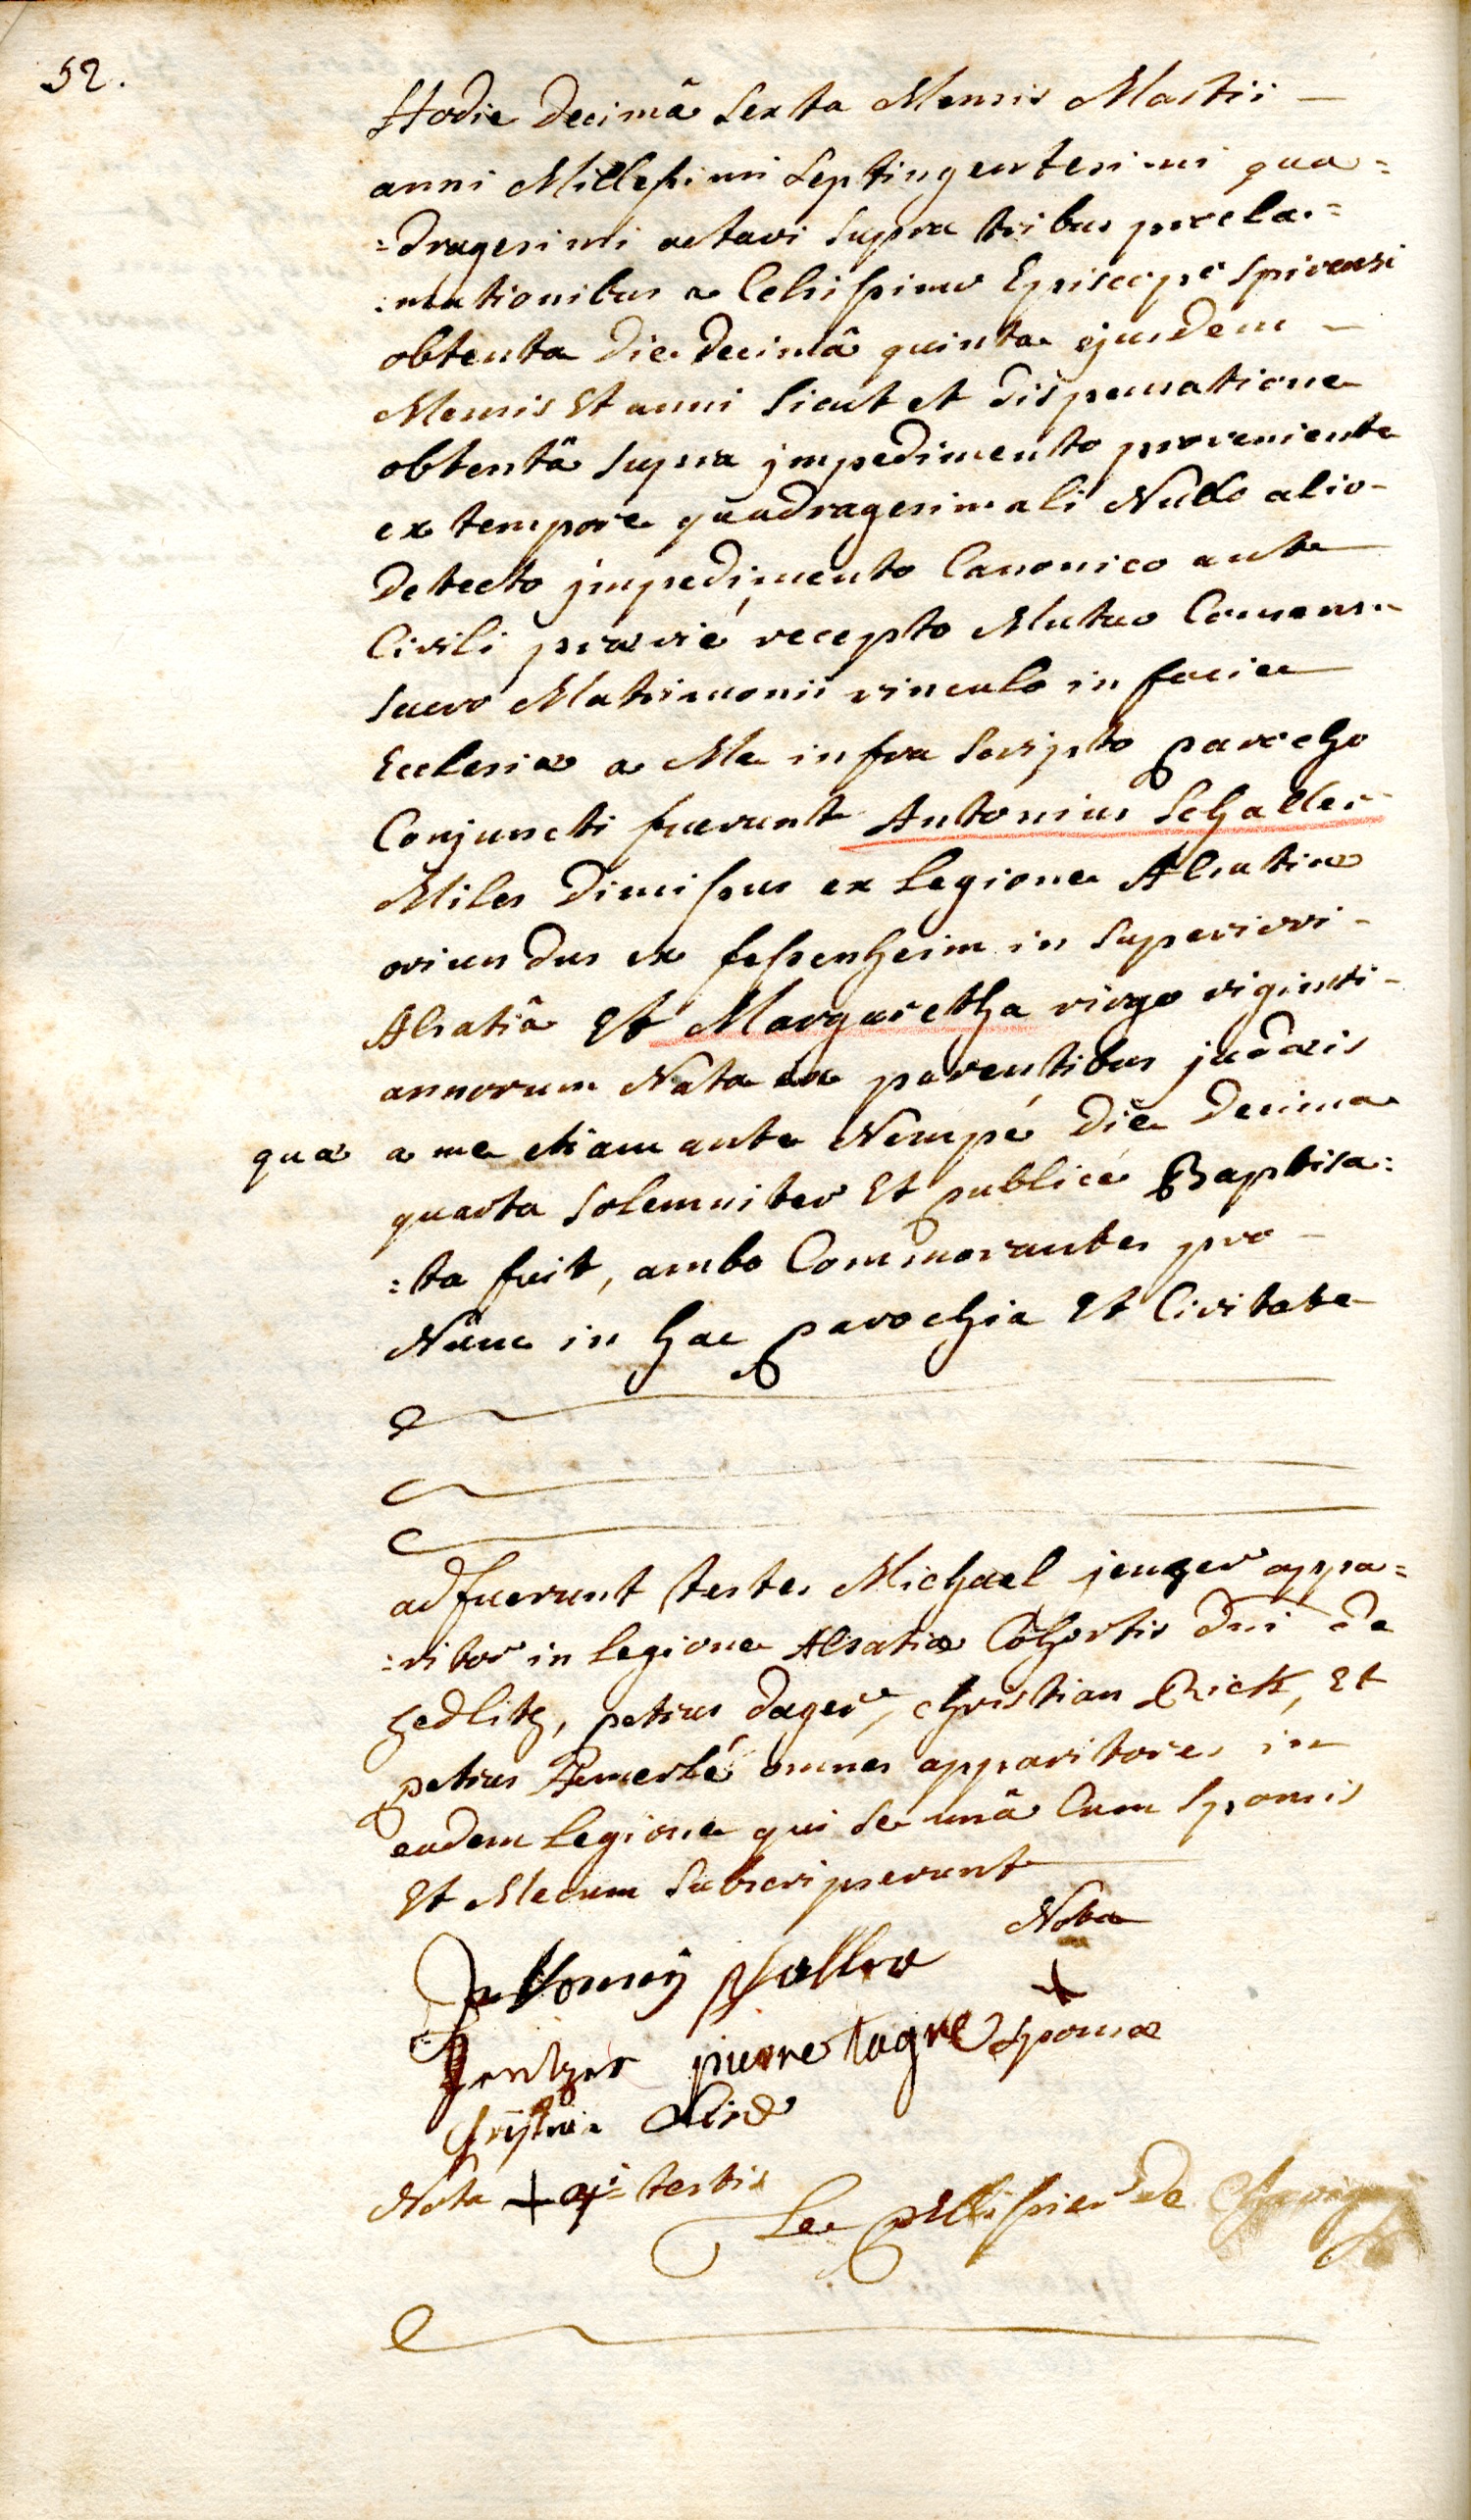 52.
Hodie Decimâ Sexta Mensis Martii –
anni Millesimi Septingentesimi qua=
=dragesimi octavi Supra tribus procla=
:mationibus a Celsissimo Episcopo Spirensi
obtenta Die Decimâ quinta ejusdem –
Mensis Et anni Sicut et dispensatione
obtentâ Supra jmpedimento proveniente
ex tempore quadragesimali Nullo alio-
Detecto jmpedimento Canonico aut
Civili prævié recepto Mutuo Consensu
Sacro Matrimonii vinculo in facie
Ecclesiæ a Me infra Scripto parocho
Conjuncti fuerunt Antonius Schaller
Miles Dimissus ex Legione Alsatiæ
oriundus ex fessenheim in Superiori-
Alsatiâ Et Margaretha virgo viginti-
annorum Nata ex parentibus judæis
quæ a me etiam ante Nempé Die Decima
quarta Solemniter Et publicé Baptisa:
:ta fuit, ambo Commorantes pro –
Nunc in hac parochia Et Civitate
adfuerunt testes Michael jenger appa=
:ritor in Legione Alsatiæ Cohortis dni de
Zedlitz, petrus dager, christian Rick, Et
petrus omnes apparitores in
eadem Legione qui se unâ Cum Sponsis
Et Mecum Subscripserunt
Nota
Anttonÿ Schaller +
pierre tagre Sponsæ
Nota + 4i testis
Le Pellissier de